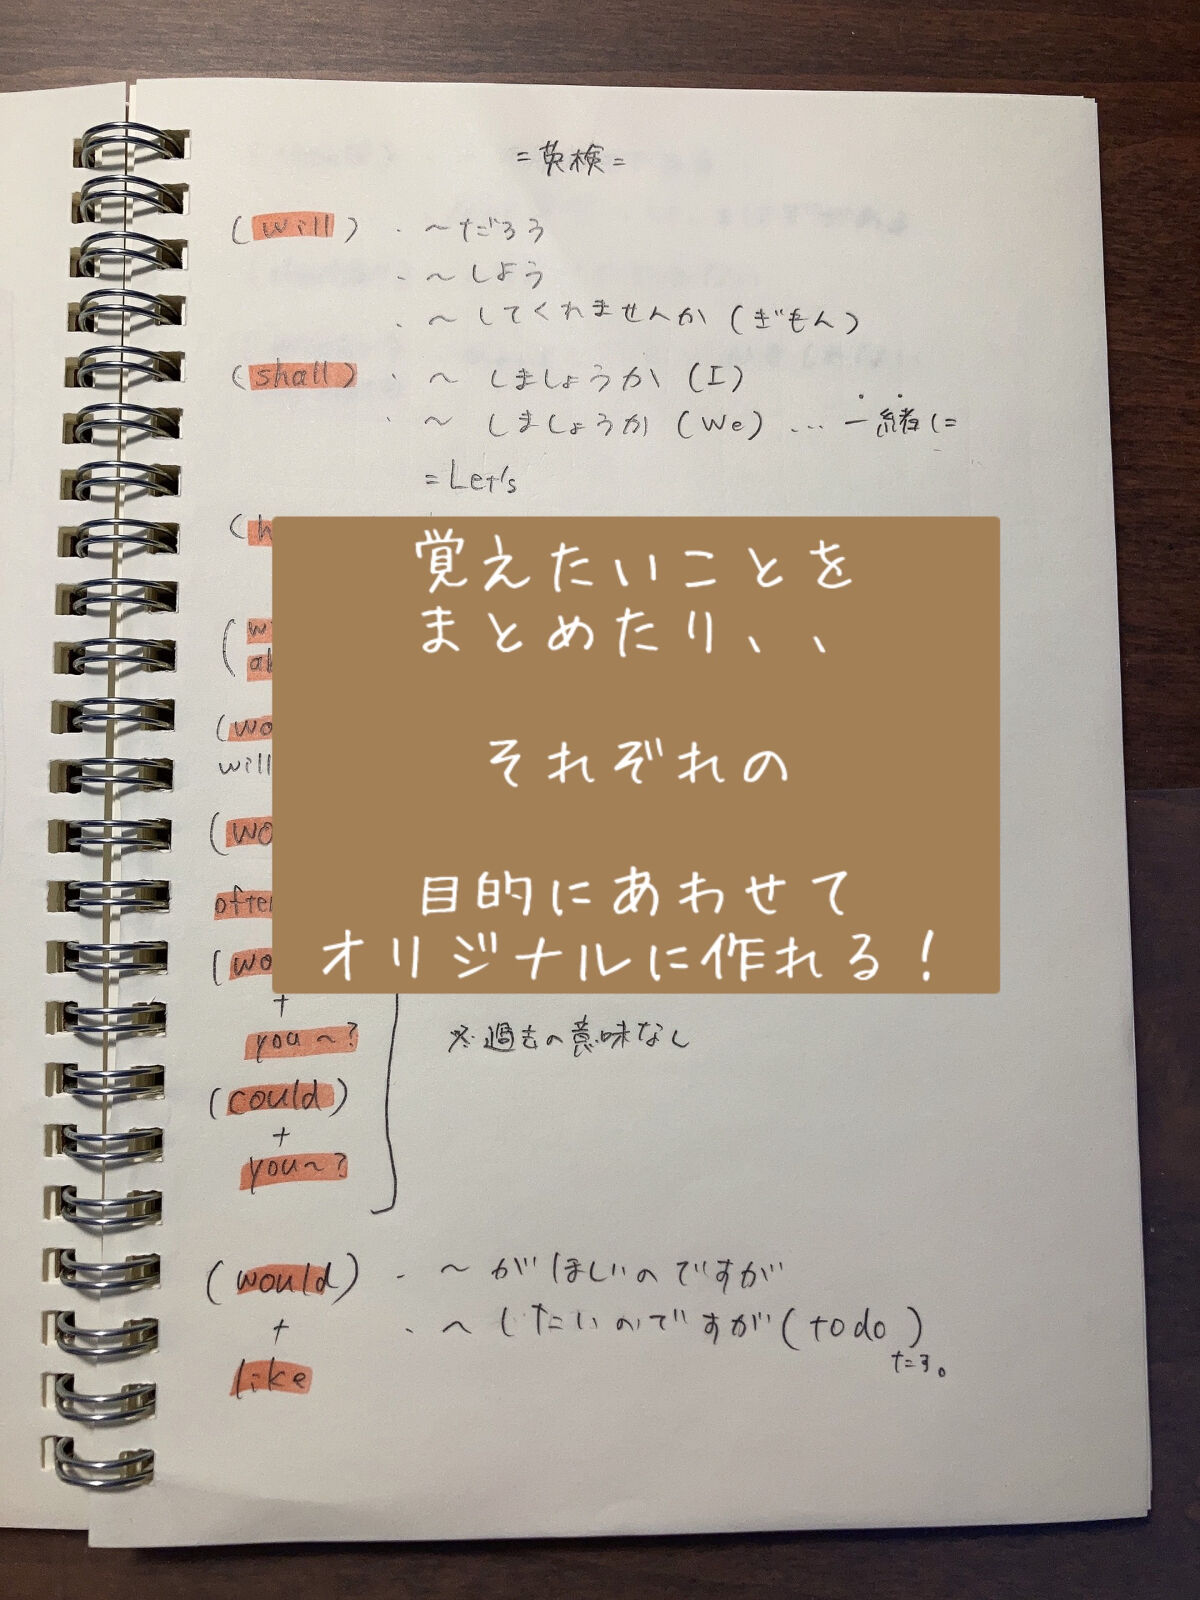 =英検=
(will) ・ ～だろう
・ ～しよう
・ ～してくれませんか (ぎもん)
(shall) ・ ～ しましょうか (I)
・ ～ しましょうか (We) … 一緒に
= Let's
(h
覚えたいことを
まとめたり、、
それぞれの
目的にあわせて
オリジナルに作れる！
(w
(wo
will
(wo
(wo
+
you～?
※過去の意味なし
(could)
+
you～?
(would) ・ ～がほしいのですが
+ ・ ～したいのですが (to do)
たす。
like